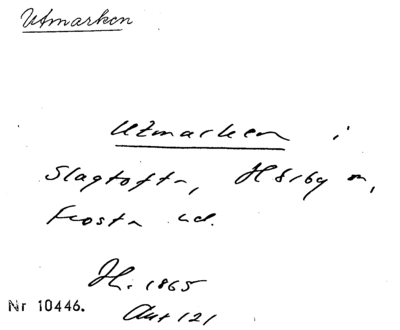 Utmarken
Utmarken i
Slagtofta, Hörby sn,
Frosta hd.
H. 1865
Nr 10446.
Ant 121